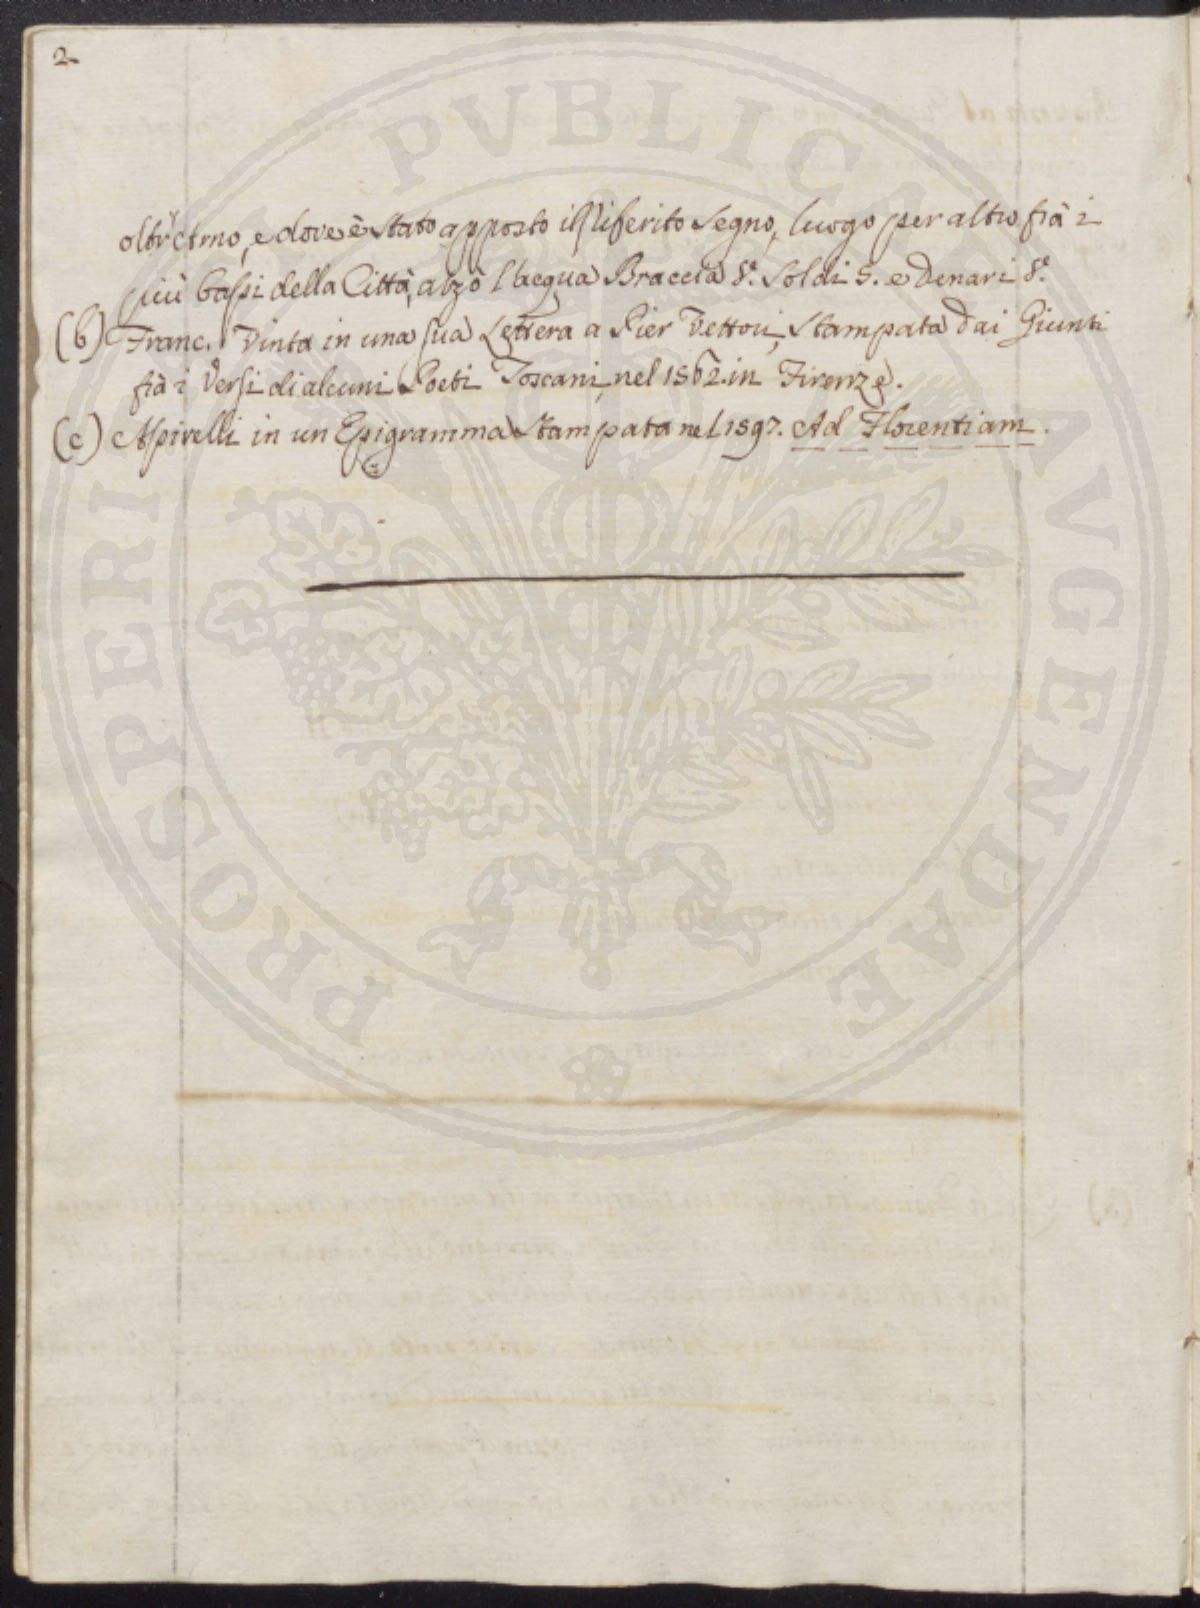 2.
oltr'Arno, e dove è stato apposto il riferito segno, luogo per altro frà i
più bassi della Città, alzò l'acqua Braccia 8. Soldi 5. e Denari 8.
(b) Franc. Vinta in una sua Lettera a Pier Vettori, stampata dai Giunti
frà i Versi di alcuni Poeti Toscani, nel 1562. in Firenze.
(c) Aspirelli in un Epigramma stampata nel 1597. Ad Florentiam.
PROSPERITATI PVBLICAE AVGENDAE